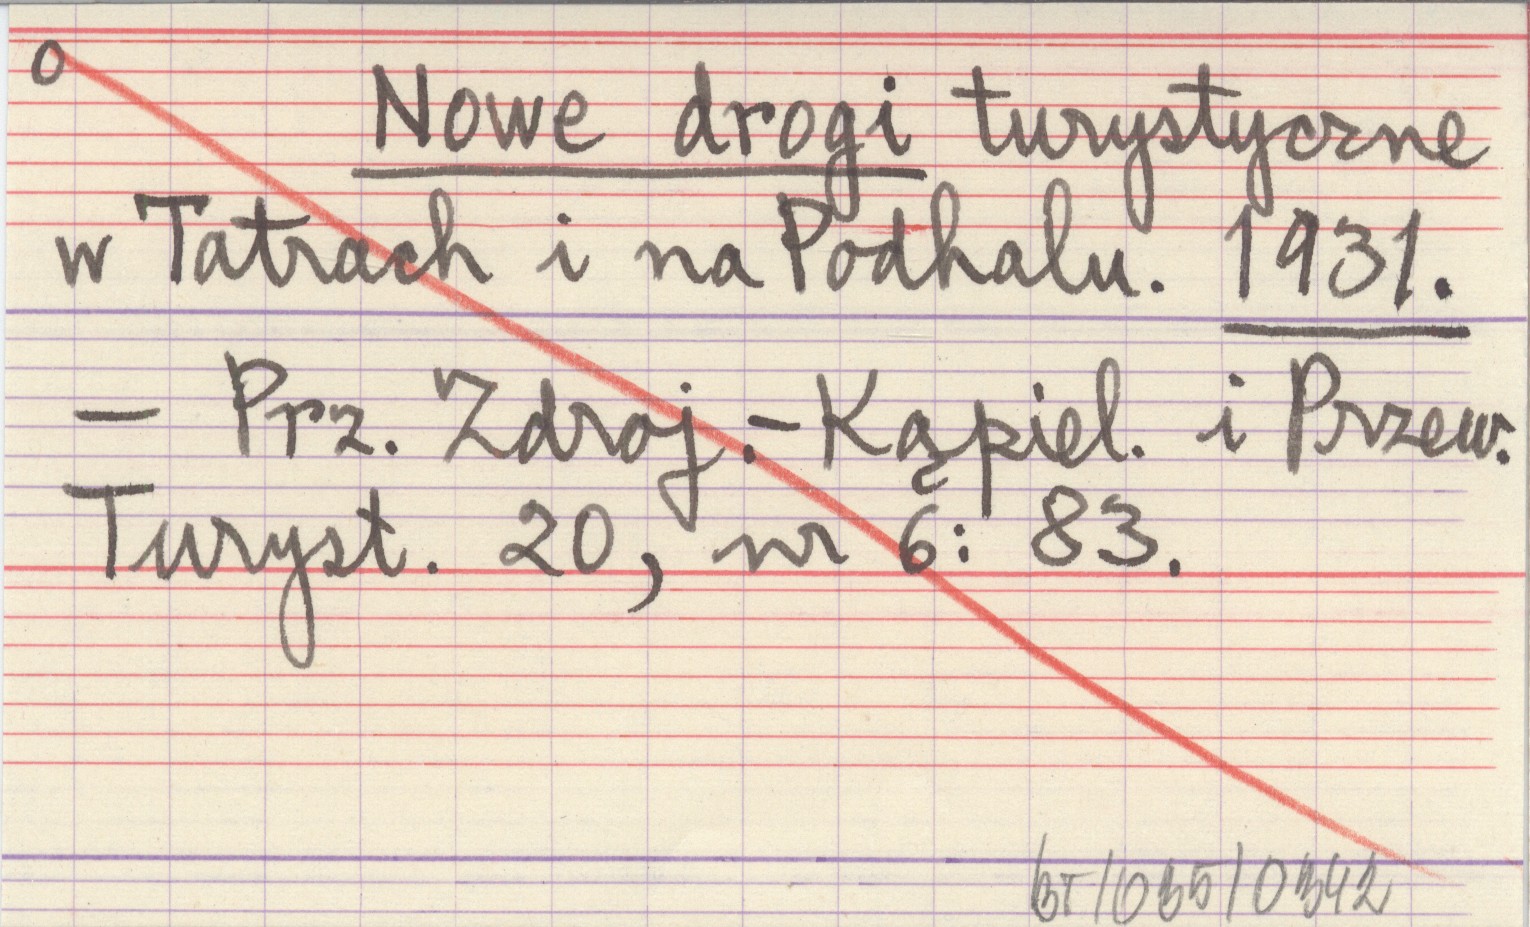 o
Nowe drogi turystyczne
w Tatrach i na Podhalu. 1931.
— Prz. Zdroj.-Kąpiel. i Przew.
Turyst. 20, nr 6: 83.
BT/035/0342